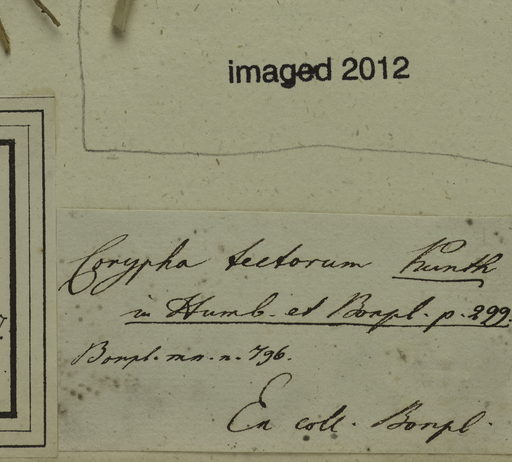 imaged 2012
Corypha tectorum Kunth
in Humb. et Bonpl. p. 299.
Bonpl. mn. n. 796.
Ex coll. Bonpl.